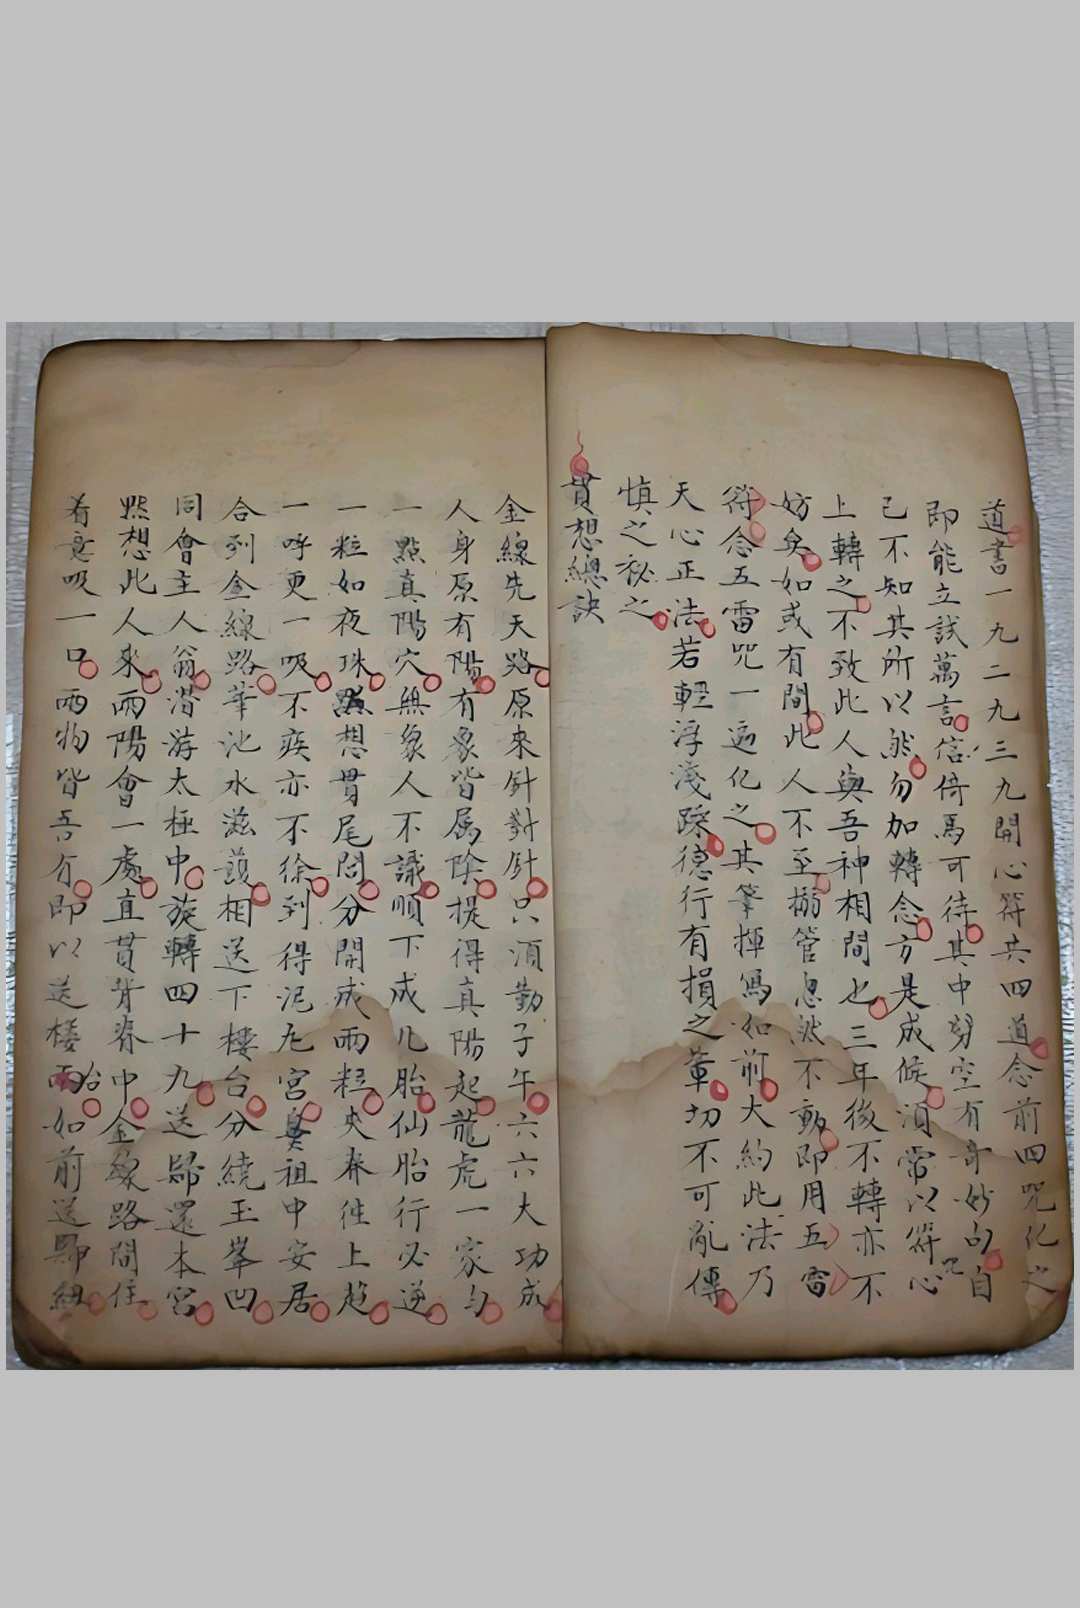 道書一九二九三九開心符共四道念前四咒化之
即能立試萬言信倚馬可待其中身空有奇妙句自
已不知其所以然勿加轉念方是成候須常以符咒心
上轉之不致此人與吾神相間也三年後不轉亦不
妨矣如或有間此人不至搦管忽然不動即用五雷
符念五雷咒一遍化之其筆揮寫如前大約此法乃
天心正法若輕浮淺躁德行有損之輩切不可亂傳
慎之秘之
貫想總訣
金線先天路原來針對針只須勤子午六六大功成
人身原有陽有象皆屬陰提得真陽起龍虎一家
一點真陽穴無象人不識順下成凡胎仙胎行必逆
一粒如夜珠默想貫尾閭分開成兩粒夾脊往上趨
一呼更一吸不疾亦不徐到得泥丸宮鼻祖中安居
合列金線路華池水滋護相送下樓台分繞玉峯凹
同會主人翁潛游太極中旋轉四十九送歸還本宮
默想此人來兩陽會一處直貫背脊中金線路間住
着意吸一口兩物皆吾有即以送樓台兩如前送歸